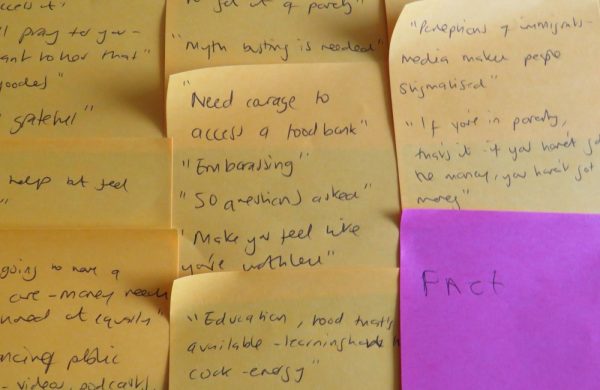 access it"
'll pray for you -
want to hear that"
goodies"
grateful"
help but feel
"
going to have a
care - money needs
at equality"
public
- video, podcast
to get it of poverty
"Myth busting is needed"
"Need corage to
access a foodbank"
"Embarassing"
"50 questions asked"
"Make you feel like
you're worthless"
"Education, food that's
available - learning how
cook - energy"
"Perceptions of immigrants -
media makes people
stigmatised"
"If you're in poverty,
that's it - if you haven't got
the money, you haven't got
money"
FACT